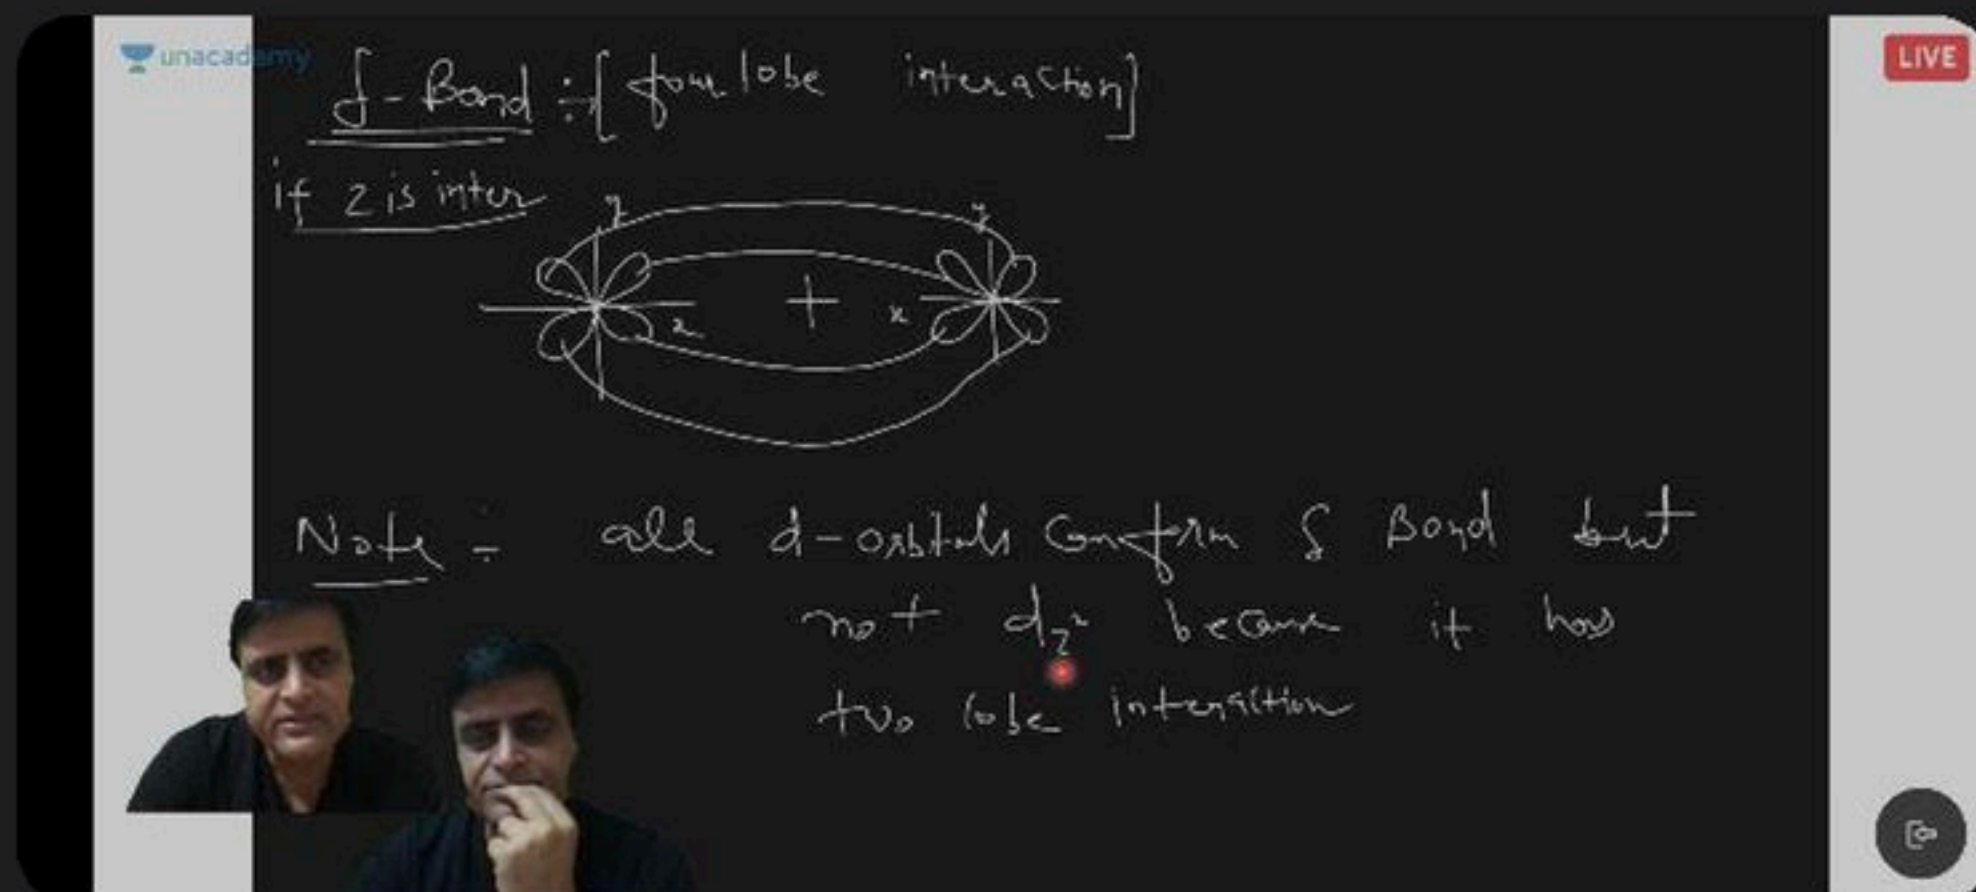 unacademy
LIVE
δ-Bond :- [four lobe interaction]
if z is inter
y y
x x
Note :- all d-orbitals can form δ Bond but
not dz² because it has
two lobe interaction